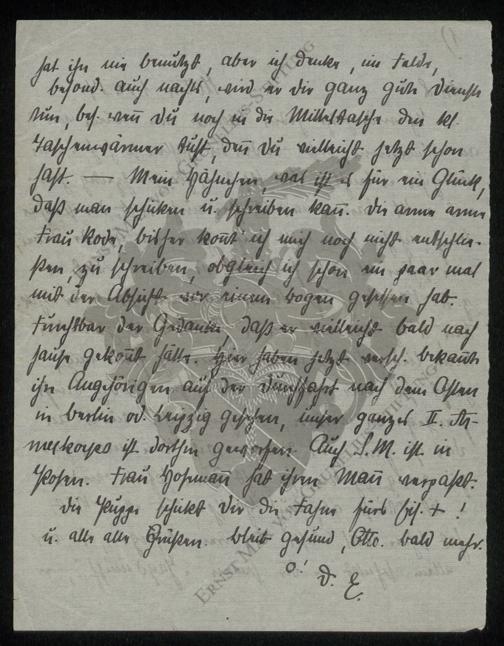 hat ihn nie benutzt, aber ich denke, im Felde,
besond. auch nachts, wird er dir ganz gute Dienste
tun, bes. weñ du noch in die Mitteltasche den kl.
Taschenwärmer tust, den du vielleicht jetzt schon
hast. — Mein Hähnchen, was ist es für ein Glück,
daß man schicken u. schreiben kañ. Die arme arme
Frau Kode, bisher koñt ich mich noch nicht entschlie-
ßen, zu schreiben, obgleich ich schon ein paar mal
mit der Absicht vor einem Bogen gesessen hab.
Furchtbar der Gedanke daß er vielleicht bald nach
hause gekoñt hätte. Hier haben jetzt versch. bekañte
ihre Angehörigen auf der Durchfahrt nach dem Osten
in Berlin od. Leipzig gesehen, unser ganzes II. Ar-
meekorps ist dorthin geworfen. Auch S.M. ist in
Posen. Frau Hofmañ hat ihren Mañ verpaßt.
Die Puppe schickt dir die Fahne fürs
u. alle alle Grüßen. bleib gesund, Otto. bald mehr.
D. E.